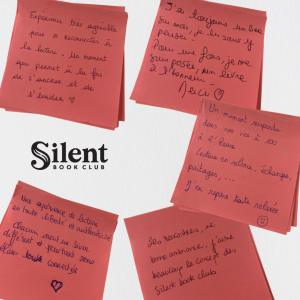 Expérience très agréable
pour se reconnecter à
la lecture. Un moment
qui permet à la fois
de s'ancrer et de
s'évader ♡
J'ai toujours un livre
sur moi, je les sans-f
pensées!
Pour une fois, je me
suis posée, un livre
à l'honneur.
Merci ♡
Silent
BOOK CLUB
Un moment suspendu
dans nos vies à 100
à l'heure
Lecture en silence, échanges,
partages, ...
J'y en repars toute relaxée
♡
Une expérience de lecture
en toute liberté et authenticité
Chacun avec un livre
différent et pourtant nous
étions tous connectés
♡
Des rencontres, une
bonne ambiance, j'aime
beaucoup le concept des
Silent book club